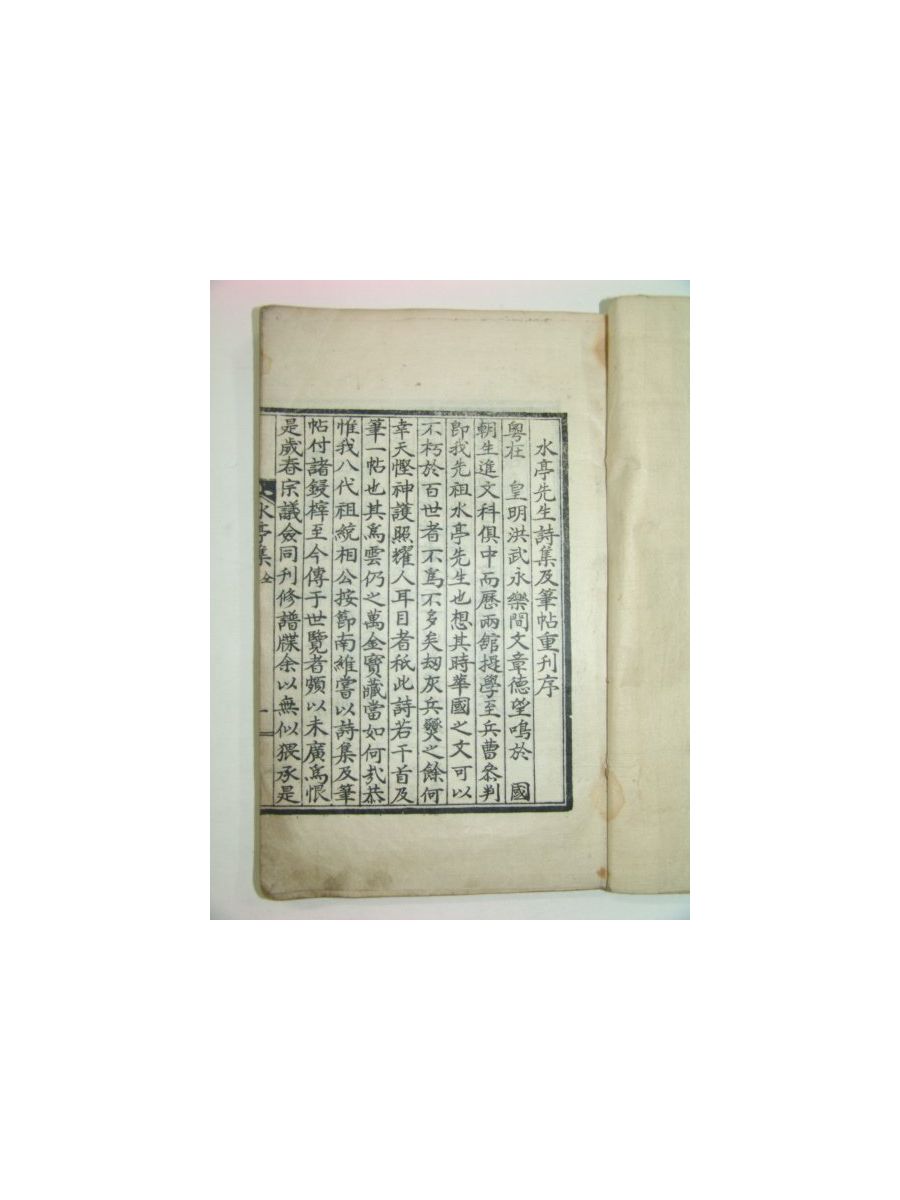 水亭先生詩集及筆帖重刊序
粤在 皇明洪武永樂間文章德望鳴於 國
朝生進文科俱中而歷兩舘提學至兵曹叅判
即我先祖水亭先生也想其時華國之文可以
不朽於百世者不爲不多矣刼灰兵燹之餘何
幸天慳神護照耀人耳目者秖此詩若干首及
筆一帖也其爲雲仍之萬金寶藏當如何㢤恭
惟我八代祖統相公按節南維嘗以詩集及筆
帖付諸鋟榟至今傳于世覽者頗以未廣爲恨
是歲春宗議僉同刊修譜牒余以無似猥承是
水亭集 全 一